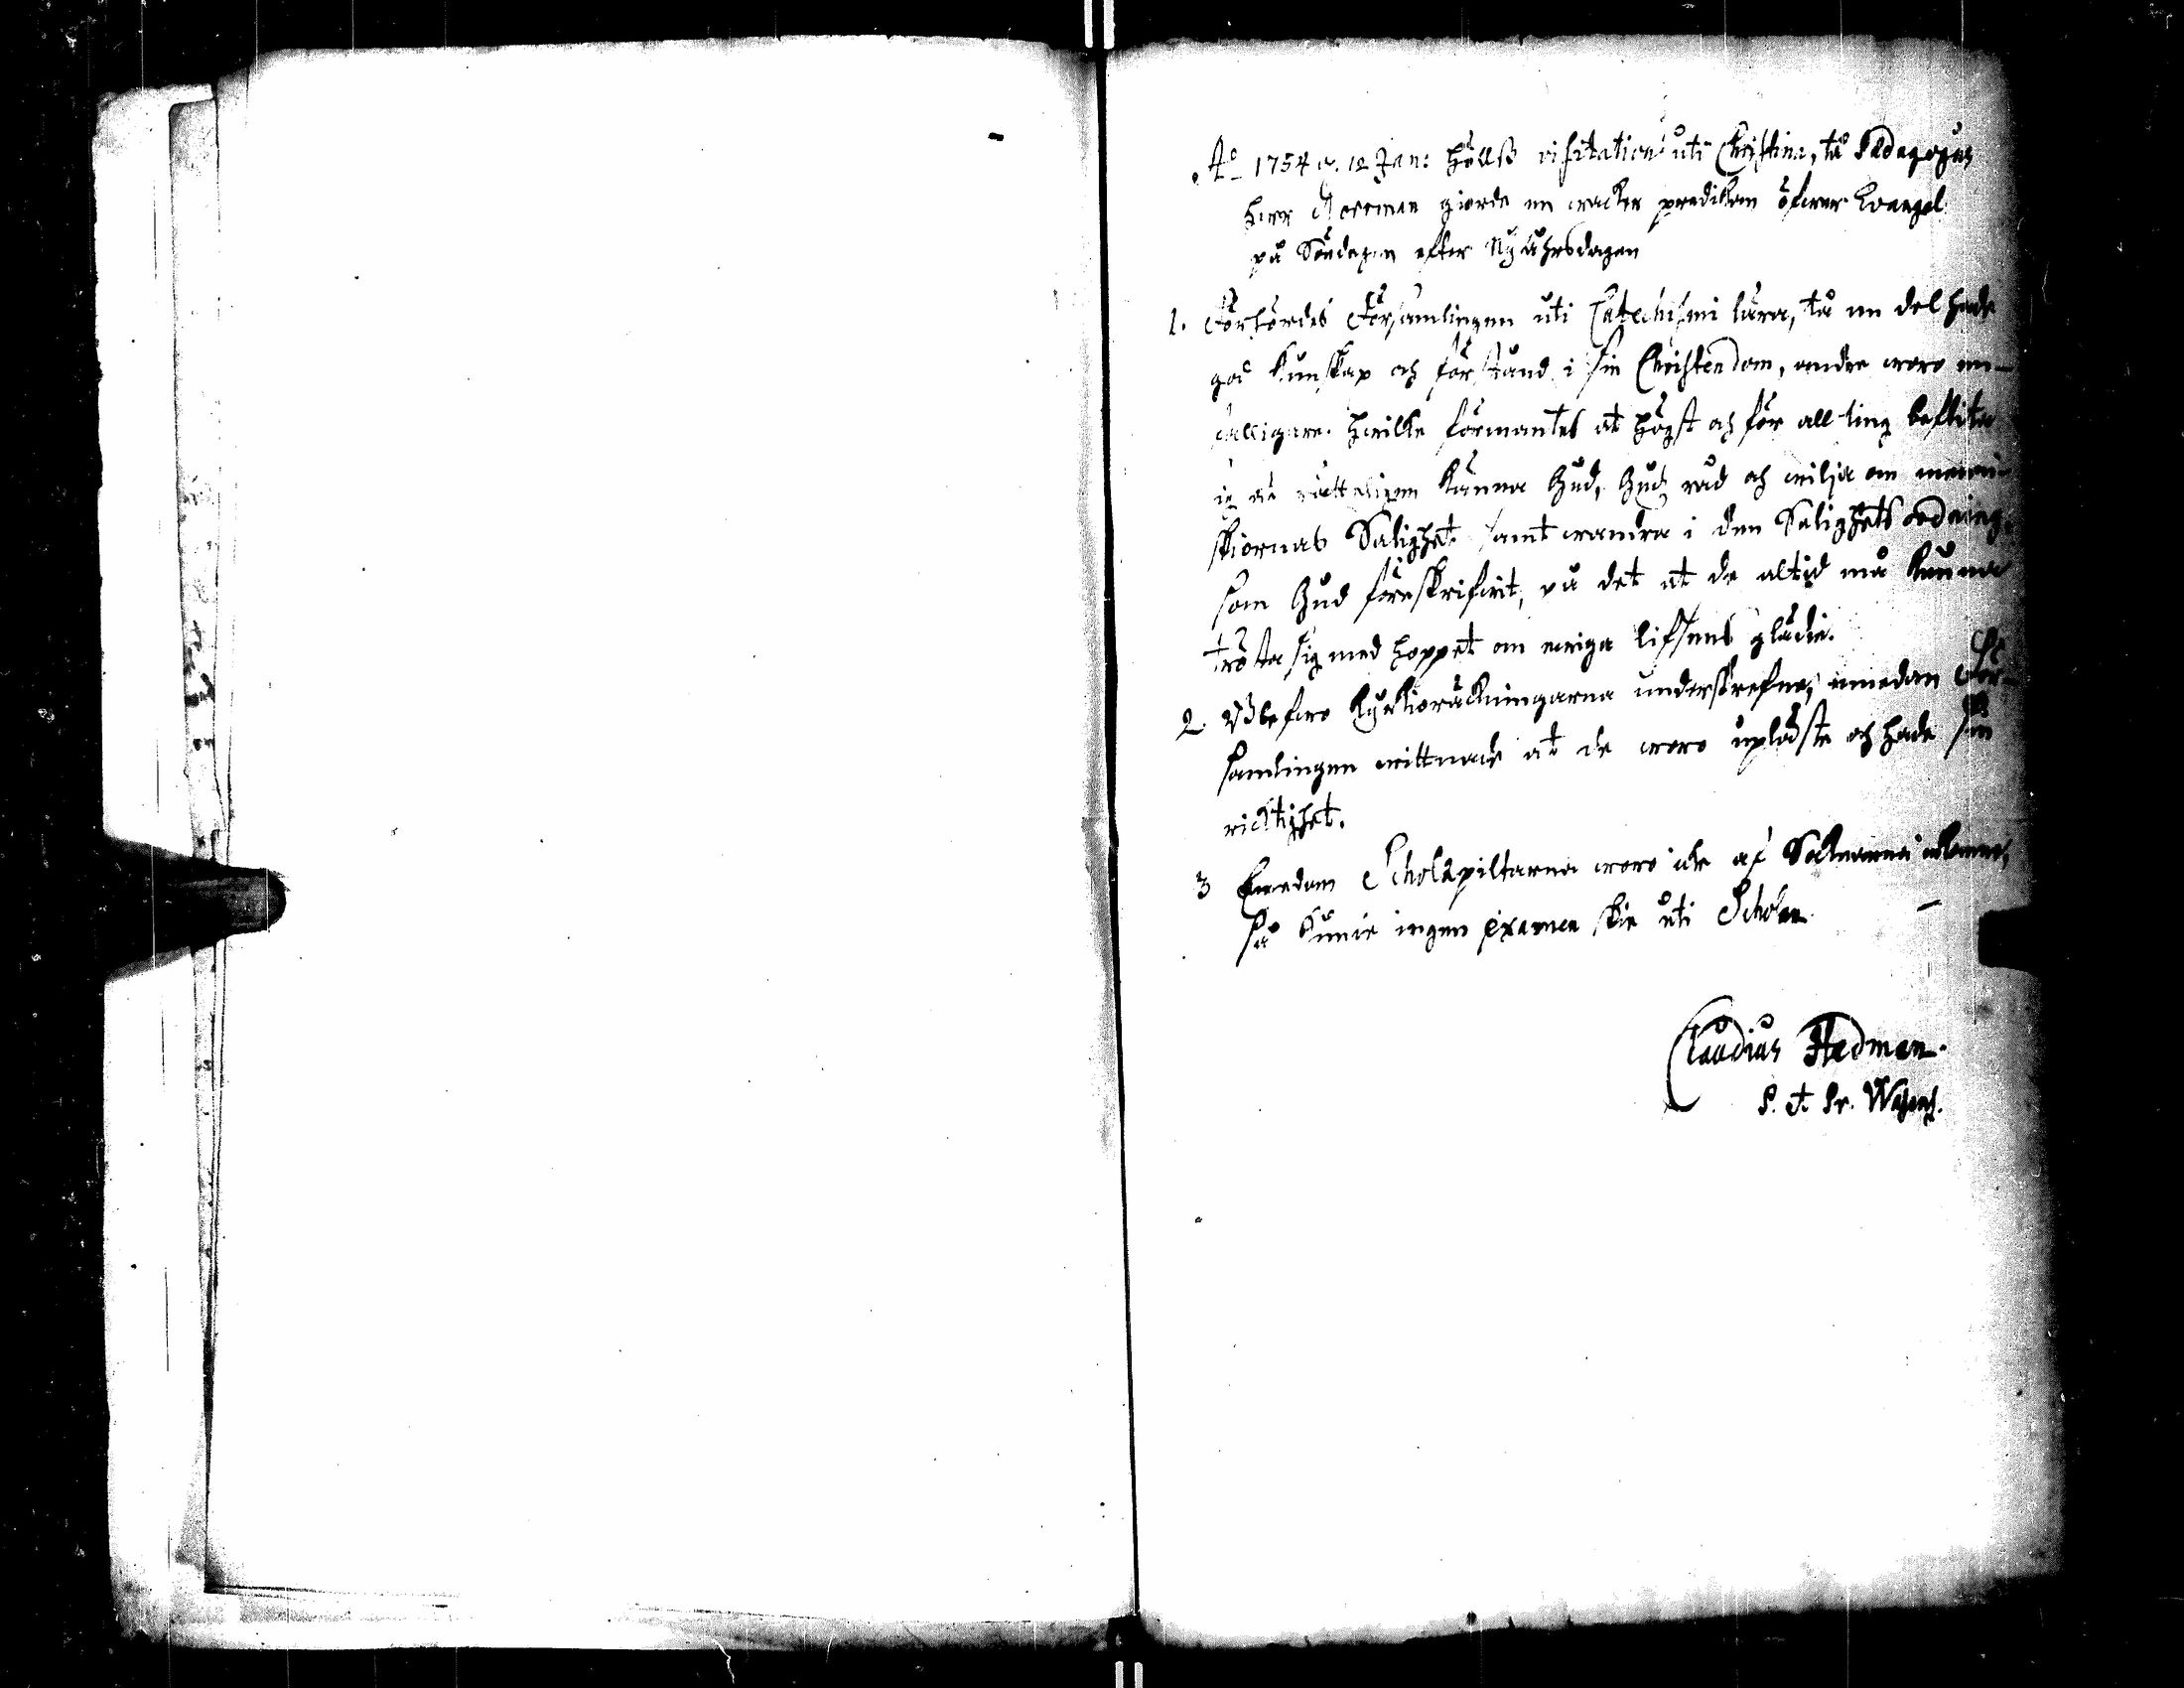 Ao 1754 d. 12 Jan: hölls visitation uti Christina, tå Pædagogus
herr Norrman giorde en wacker predikan öfwer Evangel.
på Söndagen efter Nyåhrsdagen
1. Förhördes Församlingen uti Catechismi lära, tå en del hade
god kunskap och förstånd i sin Christendom, andre woro en-
falligare. hwilke förmantes at högst och för all ting beflita
sig at rätteligen känna Gud, Guds råd och wilja om menni-
skiornas Salighet samt wandra i den Salighets ordning
som Gud föreskrifwit, på det at de altid må kunna
trösta sig med hoppet om ewiga lifsens glädie.
2. Blefwo kyrkioräkningarna underskrefne, emedan För-
samlingen wittnade at de woro uplåste och hade sin
richtighet.
3 Emedan Scholæpiltarna woro icke af Socknarna
så kunde ingen examen skie uti Scholan.
Claudius Hedman.
P. et Pr. Wasens.